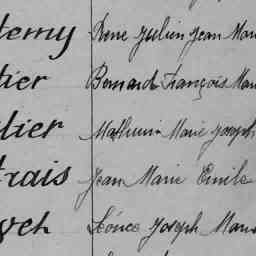 temy René Julien Jean Mari
tier Bernard François Mari
tier Mathurin Marie Joseph
trais Jean Marie Emile
vet Léonce Joseph Marie